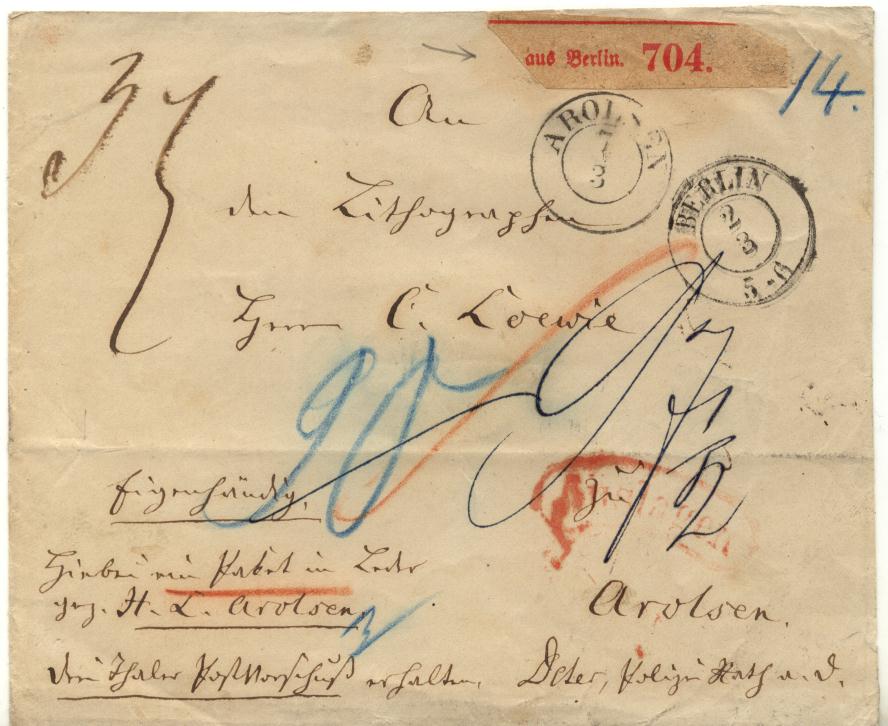 aus Berlin. 704.
14.
An
AROLSEN
3
den Lithographen
BERLIN
2/3
5-6
Herrn C. Loewie
Eigenhändig.
zu
Hierbei ein Paket in Leder
gez. H. L. Arolsen.
Arolsen.
drei Thaler Postvorschuß erhalten. Deter, Polizei Rath a. D.